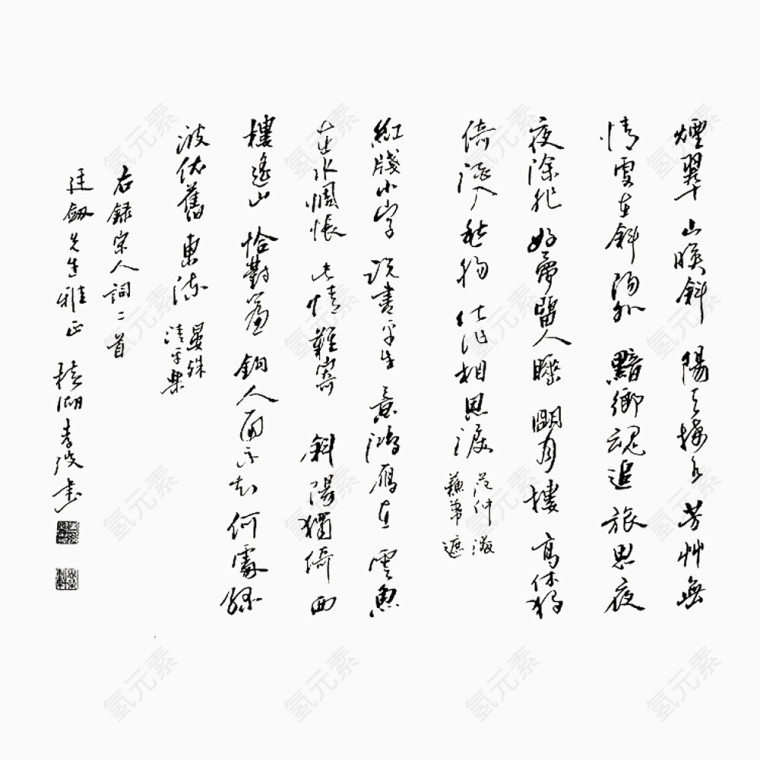 煙翠山暎斜陽天接水芳艸無
情更在斜陽外黯鄉魂追旅思夜
夜除非好夢留人睡明月樓高休獨
倚酒入愁腸化作相思淚
范仲淹
蘇幕遮
紅牋小字說盡平生意鴻雁在雲魚
在水惆悵此情難寄斜陽獨倚西
樓遙山恰對簾鉤人面不知何處綠
波依舊東流
晏殊
清平樂
右錄宋人詞二首
廷劔先生雅正 湖李書
氢元素